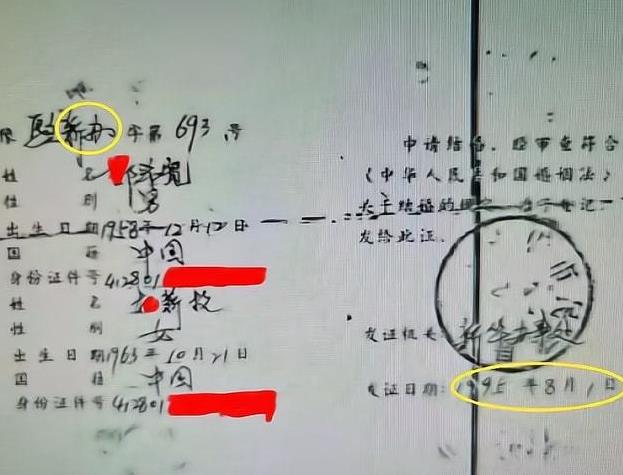 字第 693 号
姓 名
性 别 男
出生日期 1958年12月12日
国 籍 中国
身份证件号 412801
姓 名
性 别 女
出生日期 1963年10月21日
国 籍 中国
身份证件号 412801
申请结婚，经审查符合
《中华人民共和国婚姻法》
关于结婚的规定
发给此证。
发证机关：新华办事处
发证日期：1995年8月1日